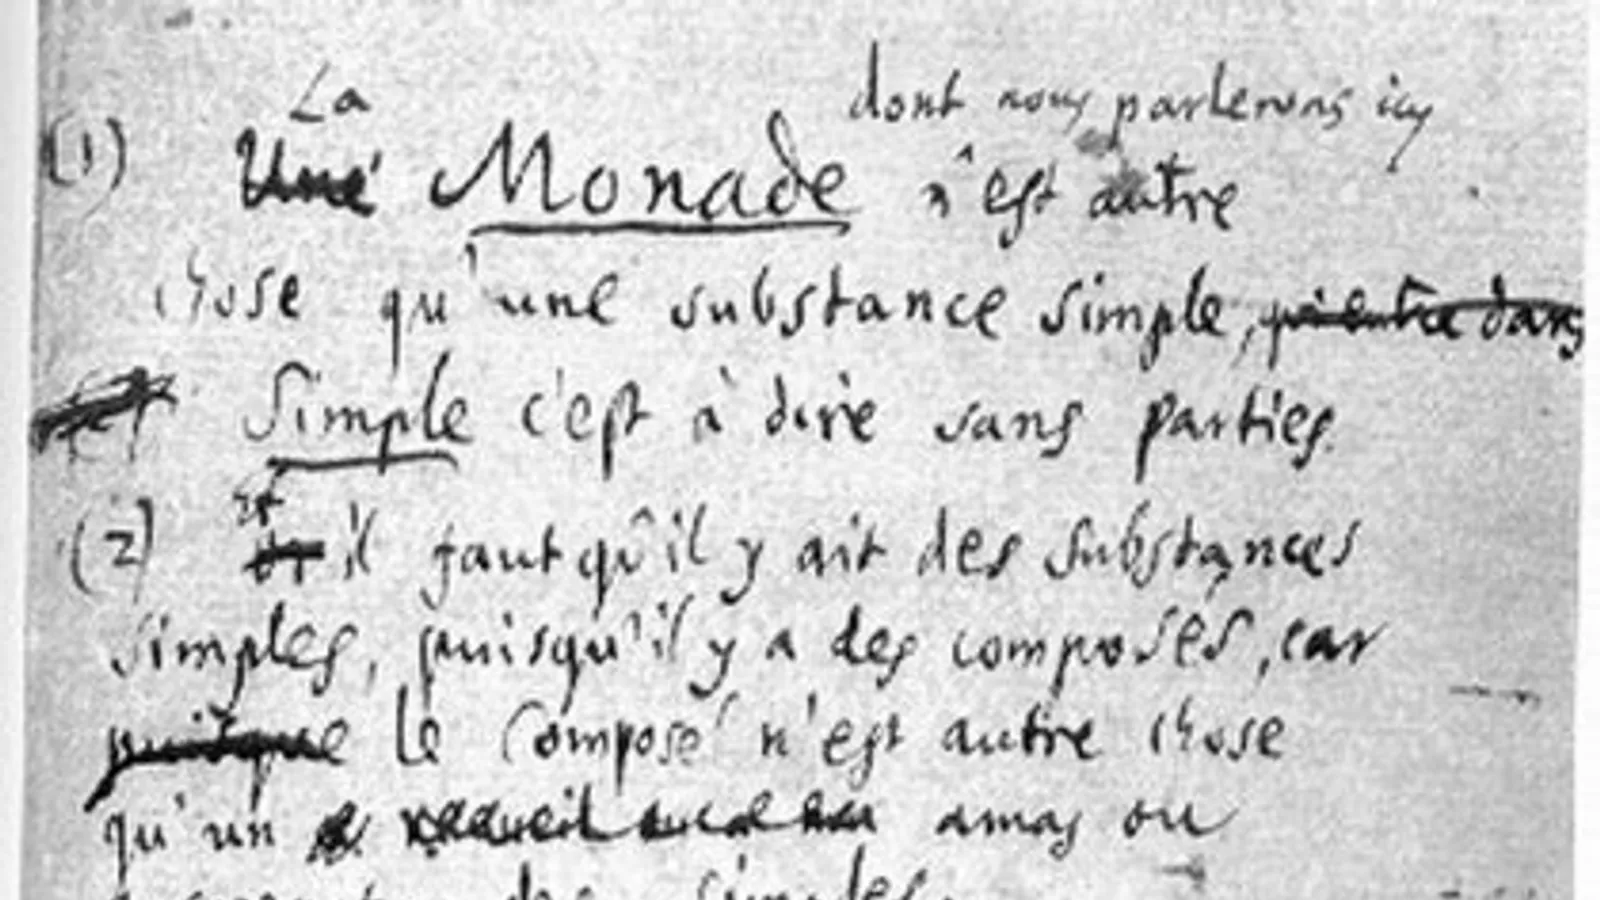 La dont nous parlerons icy
(1) Une Monade n'est autre
chose qu'une substance simple, qui entre dans
Simple c'est à dire sans parties.
Et
(2) Or il faut qu'il y ait des substances
simples, puisqu'il y a des composés, car
puisque le Composé n'est autre chose
qu'un recueil amas ou
des simples.